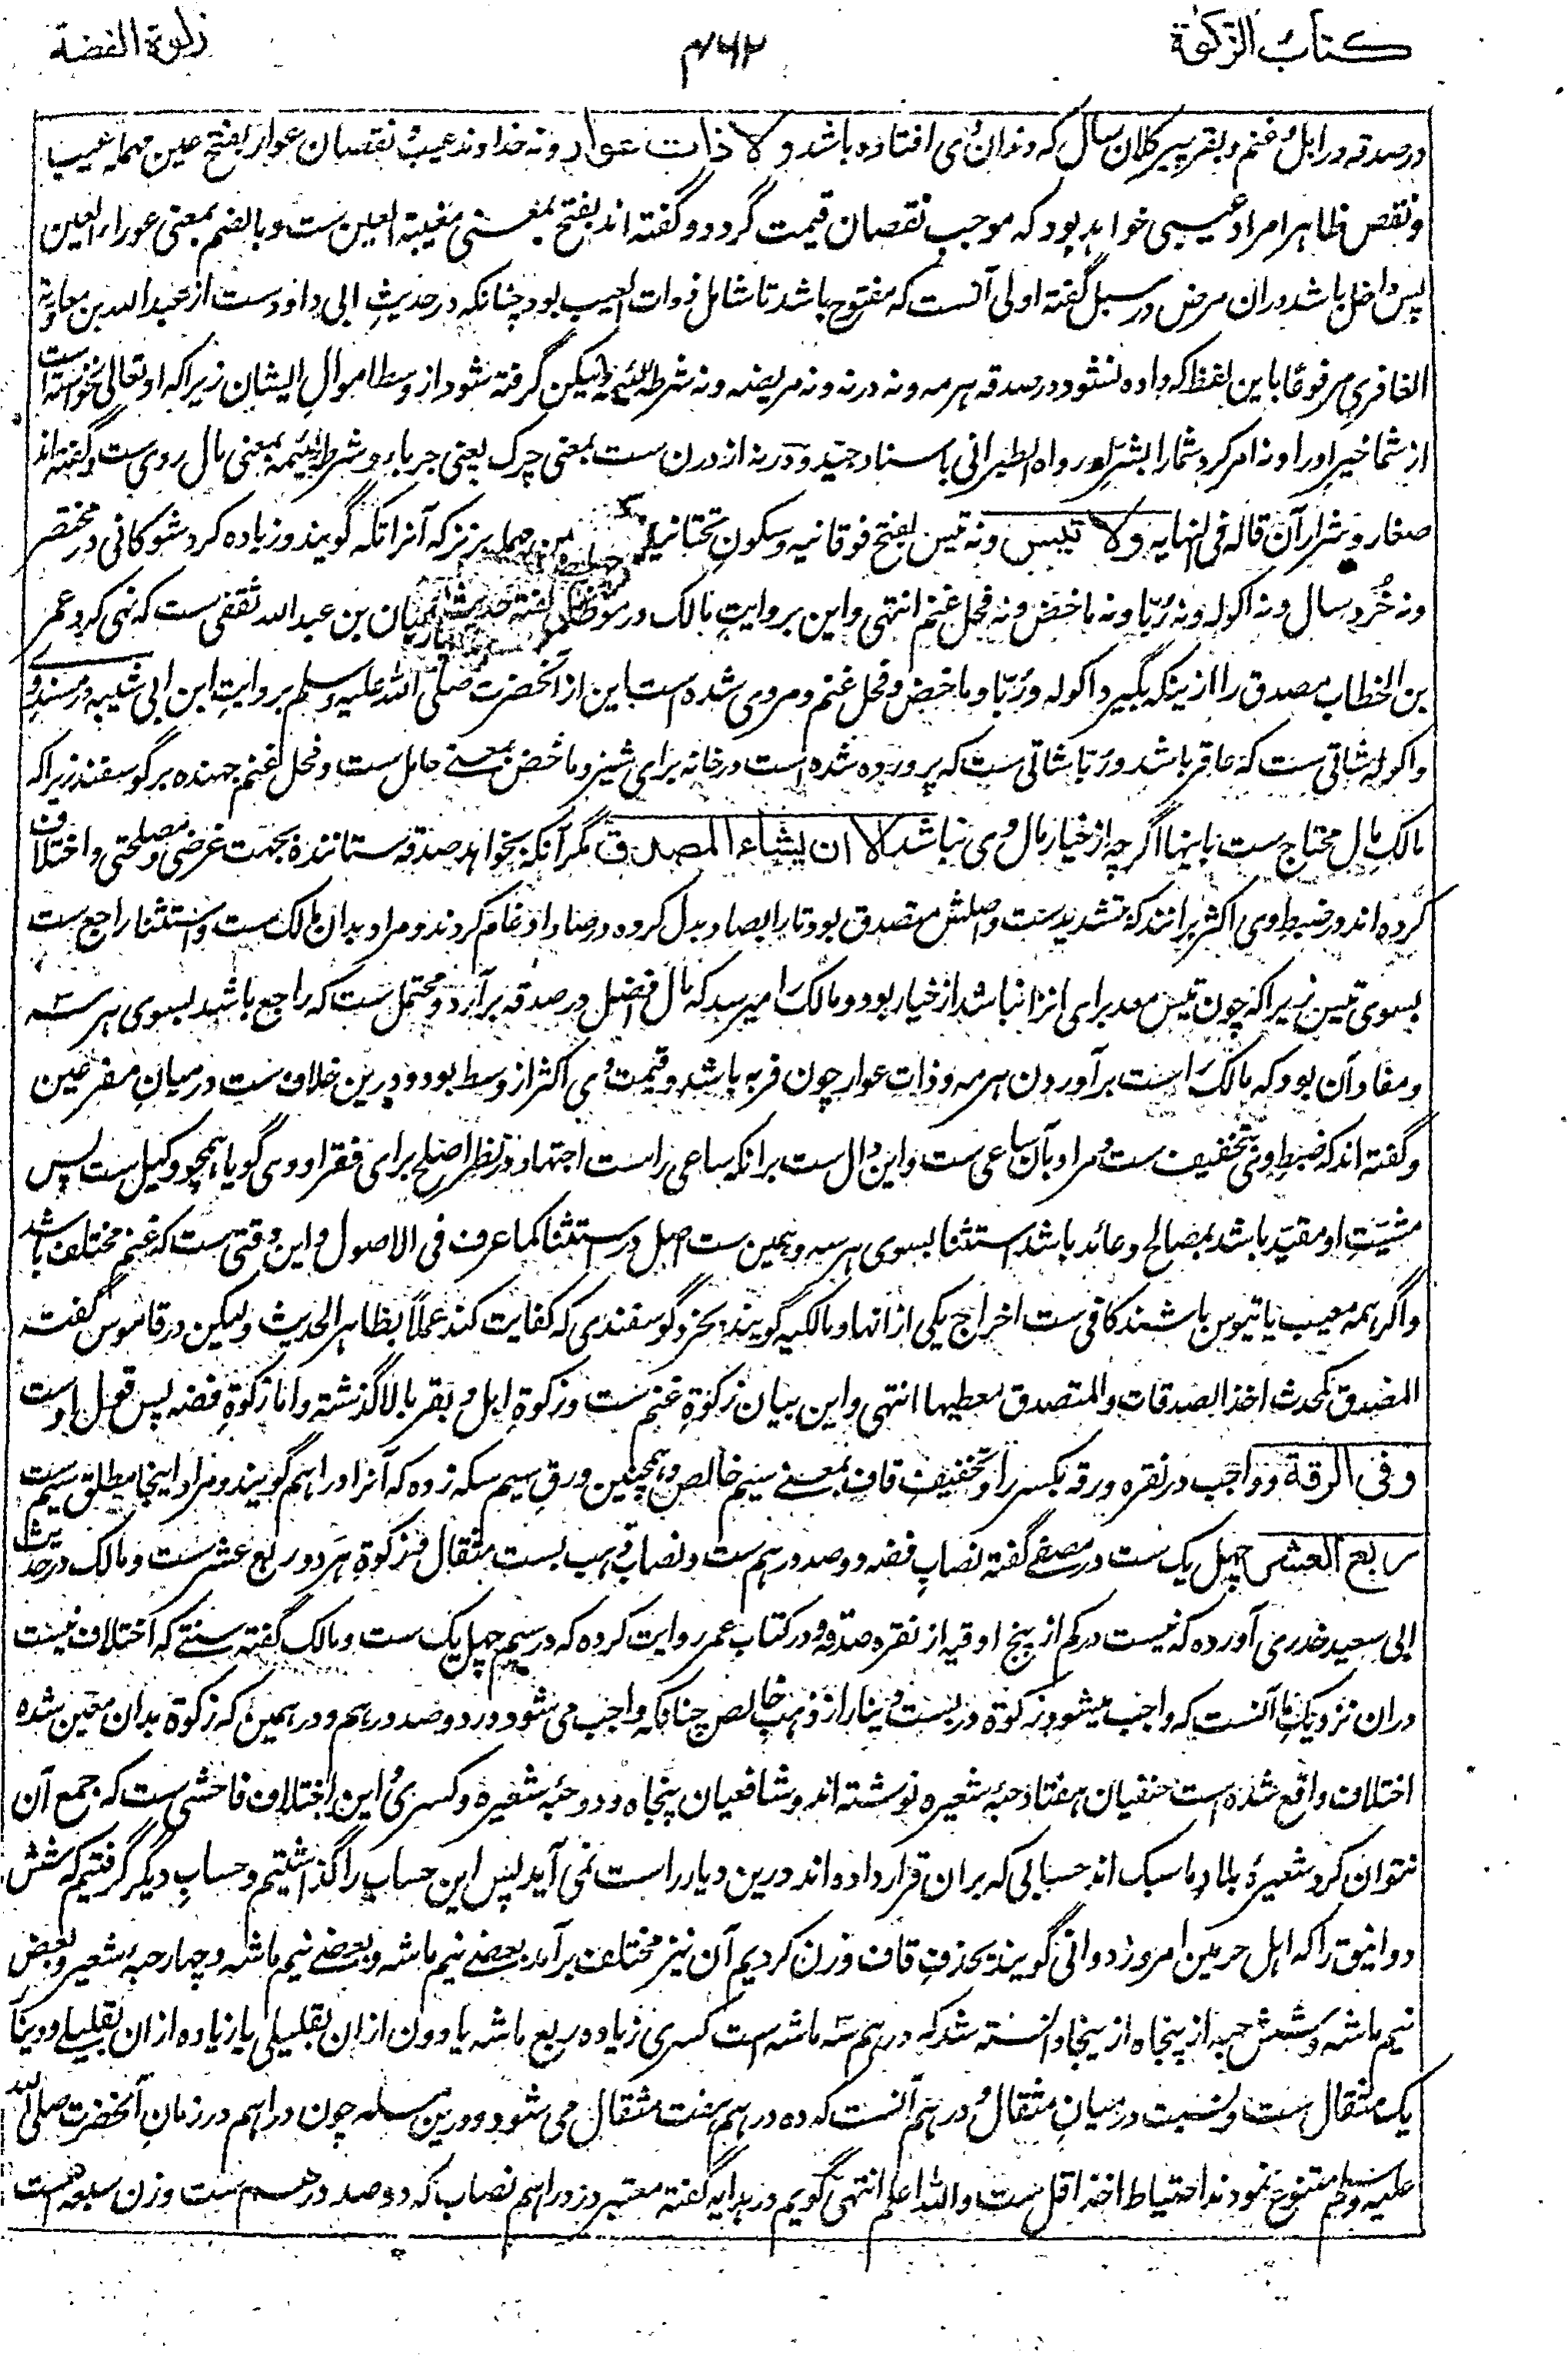 کتاب الزکوة
۴۶۲
زکوة الفضة
در صدقه در ابل و غنم و بقر پیر کلان سال که دندان وی افتاده باشد ولا ذات عوار و نه خداوند عیب و نقصان عوار بفتح عین مهمله عیب
و نقص ظاهرا مراد عیبی خواهد بود که موجب نقصان قیمت گردد و گفته اند بفتح بمعنی مغیبة العین ست و بالضم بمعنی عوراء العین
پس داخل باشد دران مرض در سبل گفته اولی آنست که مفتوح باشد تا شامل ذوات العیب بود چنانکه در حدیث ابی داود ست از عبدالله بن معاویه
الغافری مرفوعا باین لفظ که داده نشود در صدقه هرمه و نه درنه و نه مریضه و نه شرط لئیمه ولیکن گرفته شود از وسط اموال ایشان زیراکه او تعالی نخواسته است
از شما خیر او را و نه امر کرد شما را بشر او رواه الطبرانی باسناد جید و درنه از درن ست بمعنی چرک یعنی جرباء و شرط لئیمه بمعنی مال ردی ست و گفته اند
صغار و شرار آن قاله فی النهایه ولا تیس و نه تیس بفتح فوقانیه و سکون تحتانیه مهمله بز نر که آنرا تکه گویند و زیاده کرد شوکانی در مختصر
و نه خُرد سال و نه اکوله و نه رُبّا و نه ماخض و نه فحل غنم انتهی و این بروایت مالک در موطا بن عبدالله ثقفی ست که نهی کرد عمر
بن الخطاب مصدق را از ینکه بگیرد اکوله و رُبّا و ماخض و فحل غنم و مروی شده است این از آنحضرت صلی الله علیه وسلم بروایت ابن ابی شیبه در مسند وی
و اکوله شاتی ست که عاقر باشد و رُبّا شاتی ست که پرورده شده است در خانه برای شیر و ماخض بمعنی حامل ست و فحل غنم جهنده بر گوسفند زیراکه
مالک مال محتاج ست باینها اگرچه از خیار مال وی نباشد الا ان یشاء المصدق مگر آنکه بخواهد صدقه ستاننده بجهت غرضی و مصلحتی و اختلاف
کرده اند در ضبط وی اکثر برانند که بتشدید ست و اصلش متصدق بود تا را بصاد بدل کرده در صاد ادغام کردند و مراد بدان مالک ست و استثنا راجع ست
بسوی تیس زیراکه چون تیس معد برای انزا نباشد از خیار بود و مالک را میرسد که مال افضل در صدقه برآرد و محتمل ست که راجع باشد بسوی هر سه
و مفاد آن بود که مالک راست برآوردن هرمه و ذات عوار چون فربه باشد و قیمت وی اکثر از وسط بود و درین خلاف ست در میان مفرعین
و گفته اند که ضبط وی بتخفیف ست و مراد بآن ساعی ست و این دال ست برانکه ساعی راست اجتهاد در نظر اصلح برای فقرا و وی گویا همچو وکیل ست پس
مشیّت او مقیّد باشد بمصالح و عائد باشد استثنا بسوی هر سه و همین ست اصل در استثنا کما عرف فی الاصول و این وقتی ست که غنم مختلف باشد
و اگر همه معیب یا تیوس باشند کافی ست اخراج یکی از انها و مالکیه گویند بخرد گوسفندی که کفایت کند عملاً بظاهر الحدیث ولیکن در قاموس گفته
المصدق کمحدث اخذ الصدقات والمتصدق معطیها انتهی و این بیان زکوة غنم ست و زکوة ابل و بقر بالا گذشته و اما زکوة فضه پس قول اوست
وفی الرقة و واجب در نقره و رقه بکسر را و تخفیف قاف بمعنی سیم خالص و همچنین ورق سیم سکه زده که آنرا دراهم گویند و مراد اینجا مطلق سیم ست
ربع العشر چهل یک ست در مصفی گفته نصاب فضه دو صد درهم ست و نصاب ذهب بست مثقال و زکوة هر دو ربع عشر ست و مالک در حدیث
ابی سعید خدری آورده که نیست در کم از پنج اوقیه از نقره صدقه و در کتاب عمر روایت کرده که در سیم چهل یک ست و مالک گفته سنتی که اختلاف نیست
دران نزدیک ما آنست که واجب میشود زکوة در بست دینار از ذهب خالص چنانکه واجب می شود در دو صد درهم و درهمین که زکوة بدان معین شده
اختلاف واقع شده است حنفیان هفتاد حبّه شعیره نوشته اند و شافعیان پنجاه و دو حبّه شعیره و کسری و این اختلاف فاحشی ست که جمع آن
نتوان کرد شعیرهٔ بلاد ما سبک اند حسابی که بران قرار داده اند درین دیار راست نمی آید پس این حساب را گذاشتیم و حساب دیگر گرفتیم که شش
دوانیق را که اهل حرمین امروز دوانی گویند بحذف قاف وزن کردیم آن نیز مختلف برآمد بعضی نیم ماشه و بعضی نیم ماشه و چهار حبهٔ شعیر و بعض
نیم ماشه و شش حبه از پنجاه از ینجا دانسته شد که درهم سه ماشه است کسری زیاده ربع ماشه یا دون از ان بقلیلی یا زیاده از ان بقلیلی و دینار
یک مثقال ست و نسبت در میان مثقال و درهم آنست که ده درهم هفت مثقال می شود و درین مسئله چون دراهم در زمان آنحضرت صلی الله
علیه وسلم متنوع نمودند احتیاط اخذ اقل ست والله اعلم انتهی گویم در هدایه گفته معتبر در دراهم نصاب که دو صد درهم ست وزن سبعه است